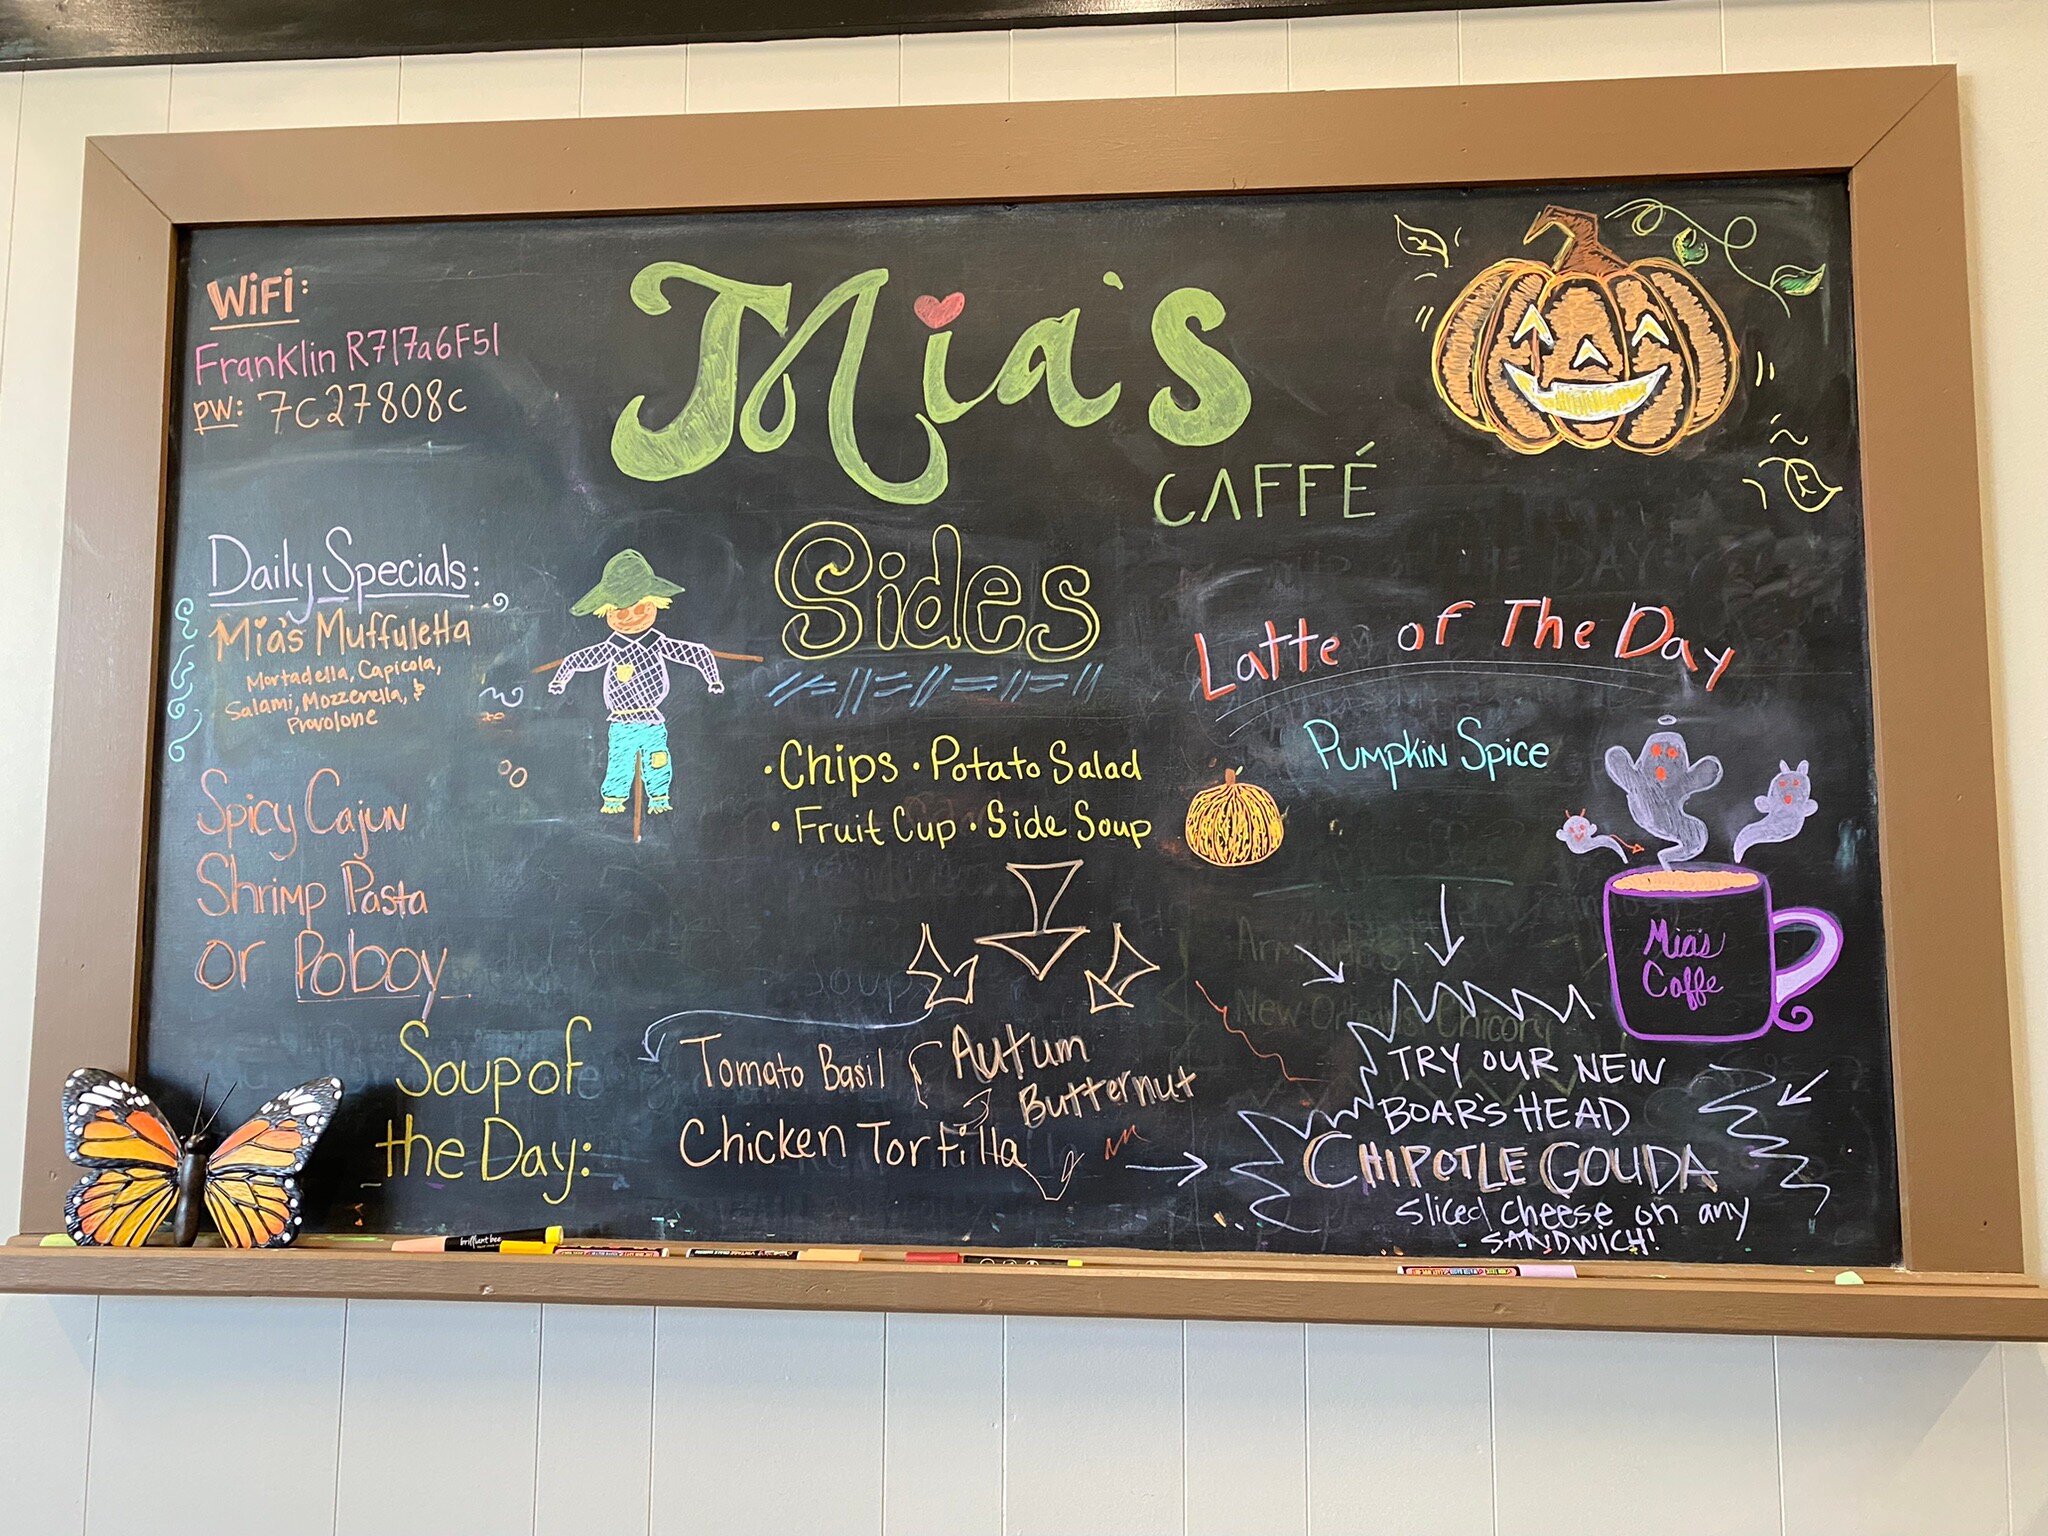 WiFi:
Franklin R717a6F51
pw: 7C27808c
Mia's
CAFFÉ
Daily Specials:
Mia's Muffuletta
Mortadella, Capicola,
Salami, Mozzerella, &
Provolone
Spicy Cajun
Shrimp Pasta
or Poboy
Sides
• Chips • Potato Salad
• Fruit Cup • Side Soup
Soup of
the Day:
Tomato Basil
Chicken Tortilla
Autum
Butternut
Latte of The Day
Pumpkin Spice
Mia's
Caffe
TRY OUR NEW
BOAR'S HEAD
CHIPOTLE GOUDA
Sliced cheese on any
SANDWICH!
brilliant bee